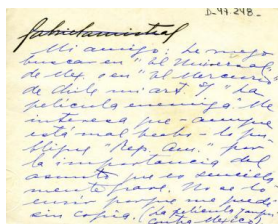 D-47.248.-
Gabriela Mistral
Mi amigo: Le ruego
buscar en "El Universal"
de Mex. o en "El Mercurio"
de Chile mi art. "La
película enemiga". Me
interesa que - aunque
está mal hecho - lo pu-
blique "Rep. Am." por
la importancia del
asunto que es sencilla
mente grave. No se lo
envío porque me quedo
sin copia.